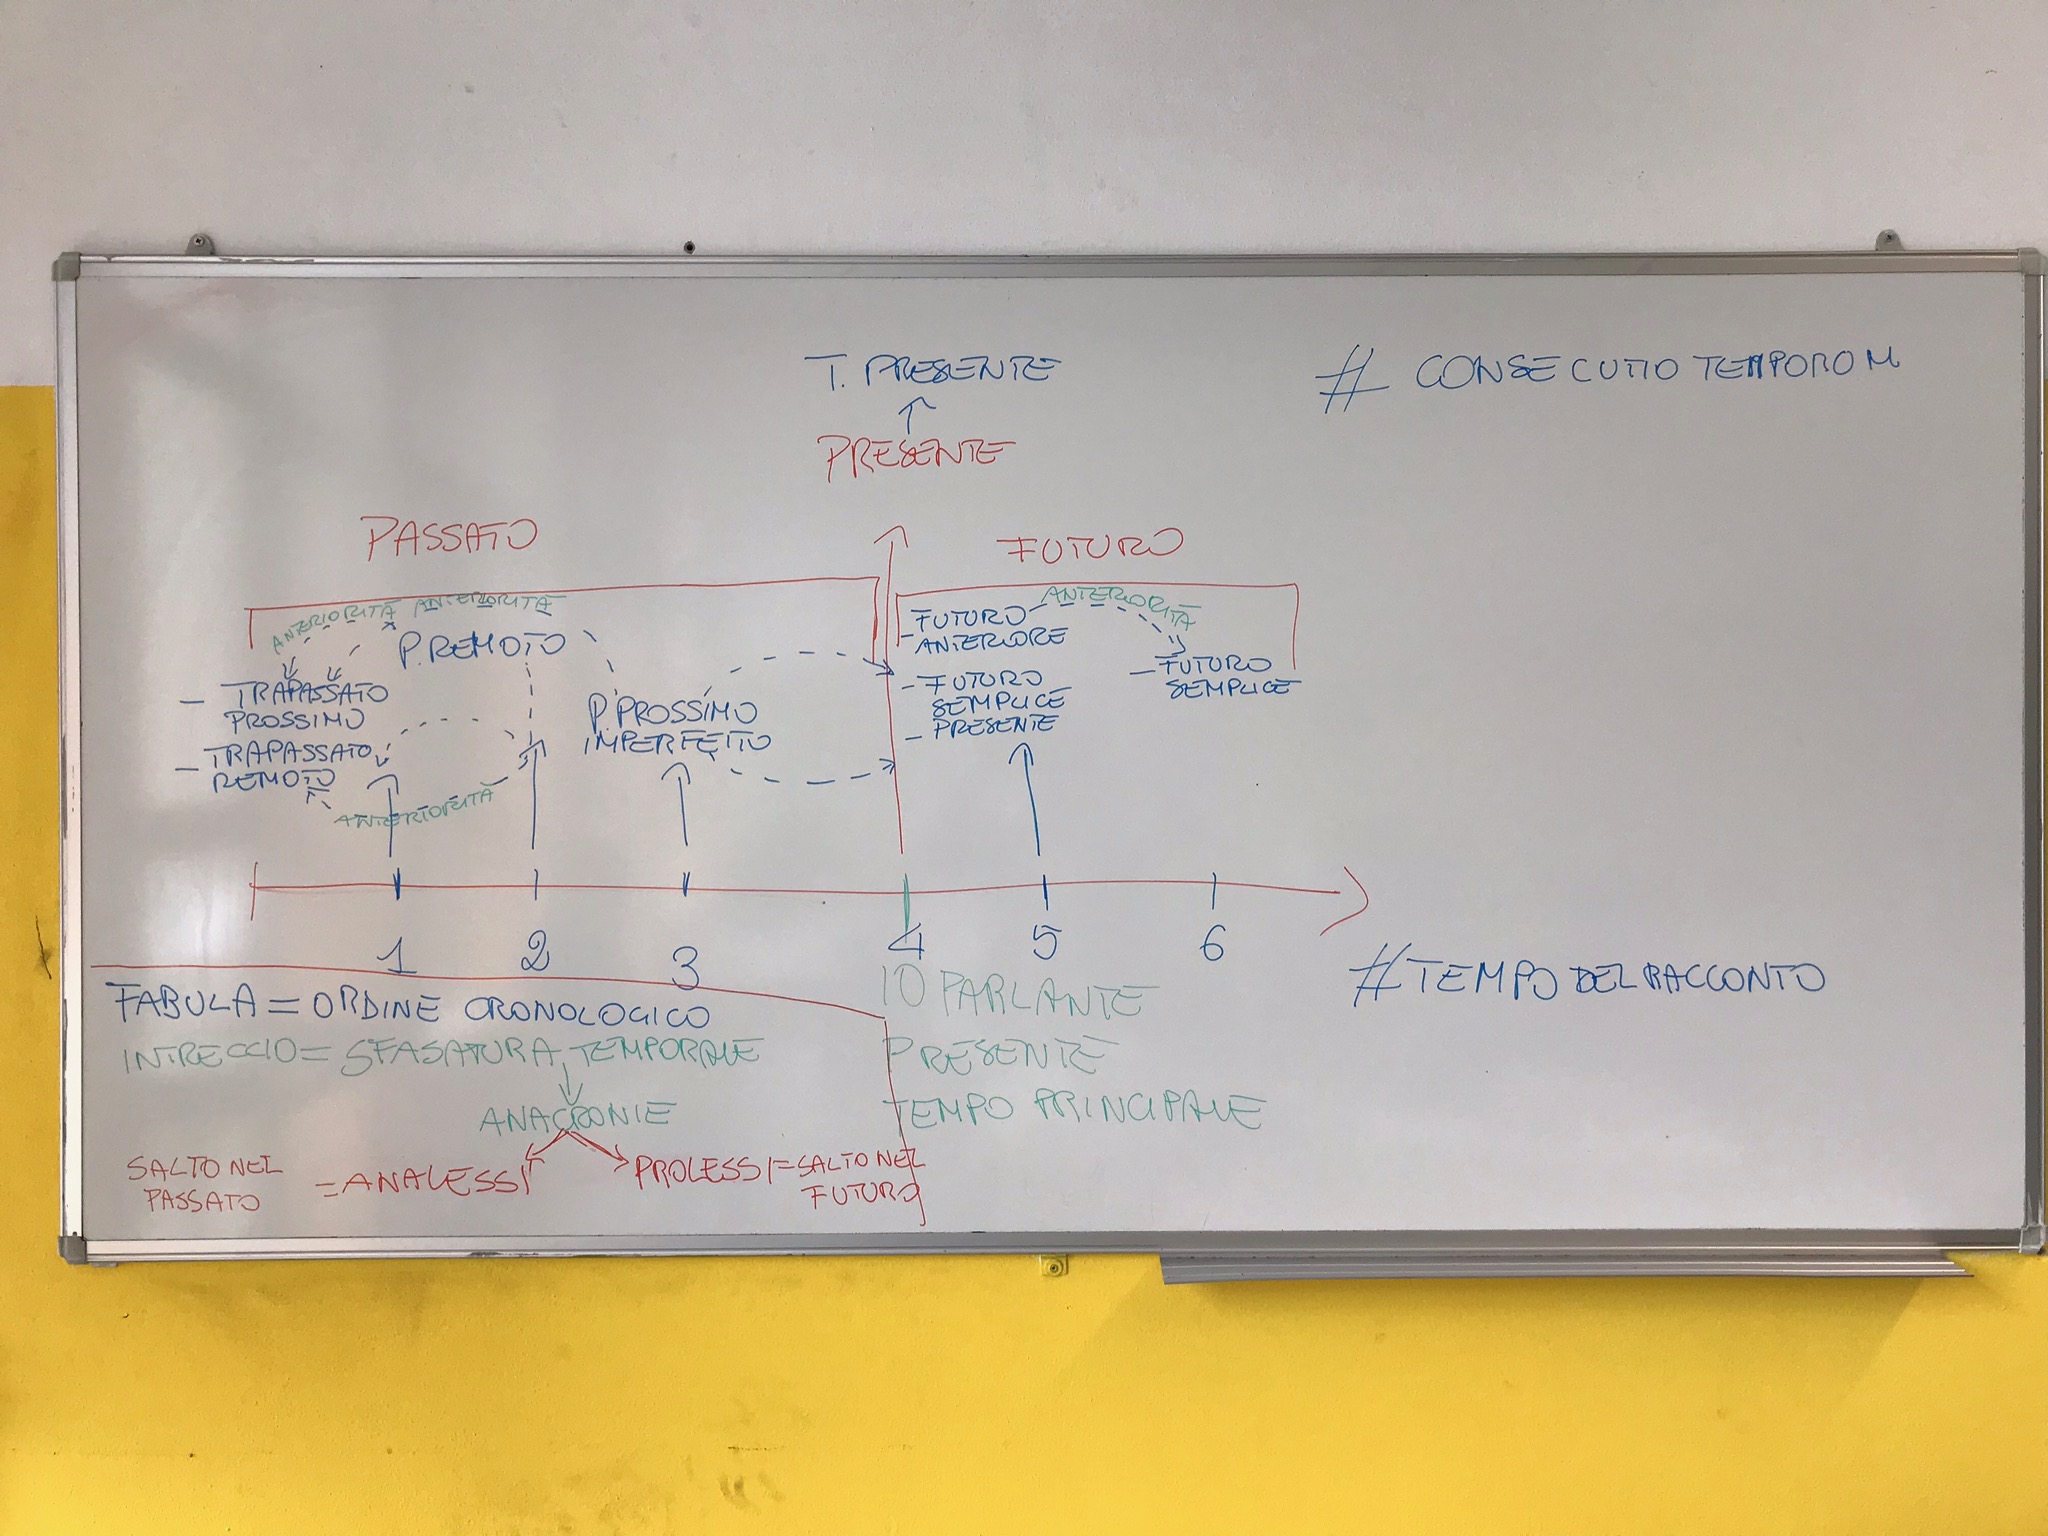 T. PRESENTE
# CONSECUTIO TEMPOROM
PRESENTE
PASSATO
FUTURO
ANTERIORITÀ ANTERIORITÀ
P. REMOTO
- TRAPASSATO
PROSSIMO
- TRAPASSATO
REMOTO
ANTERIORITÀ
P. PROSSIMO
IMPERFETTO
- FUTURO
ANTERIORE
- FUTURO
SEMPLICE
- PRESENTE
ANTERIORITÀ
- FUTURO
SEMPLICE
1 2 3 4 5 6
# TEMPO DEL RACCONTO
FABULA = ORDINE CRONOLOGICO
INTRECCIO = SFASATURA TEMPORALE
ANACRONIE
SALTO NEL
PASSATO
= ANALESSI
PROLESSI = SALTO NEL
FUTURO
IO PARLANTE
PRESENTE
TEMPO PRINCIPALE